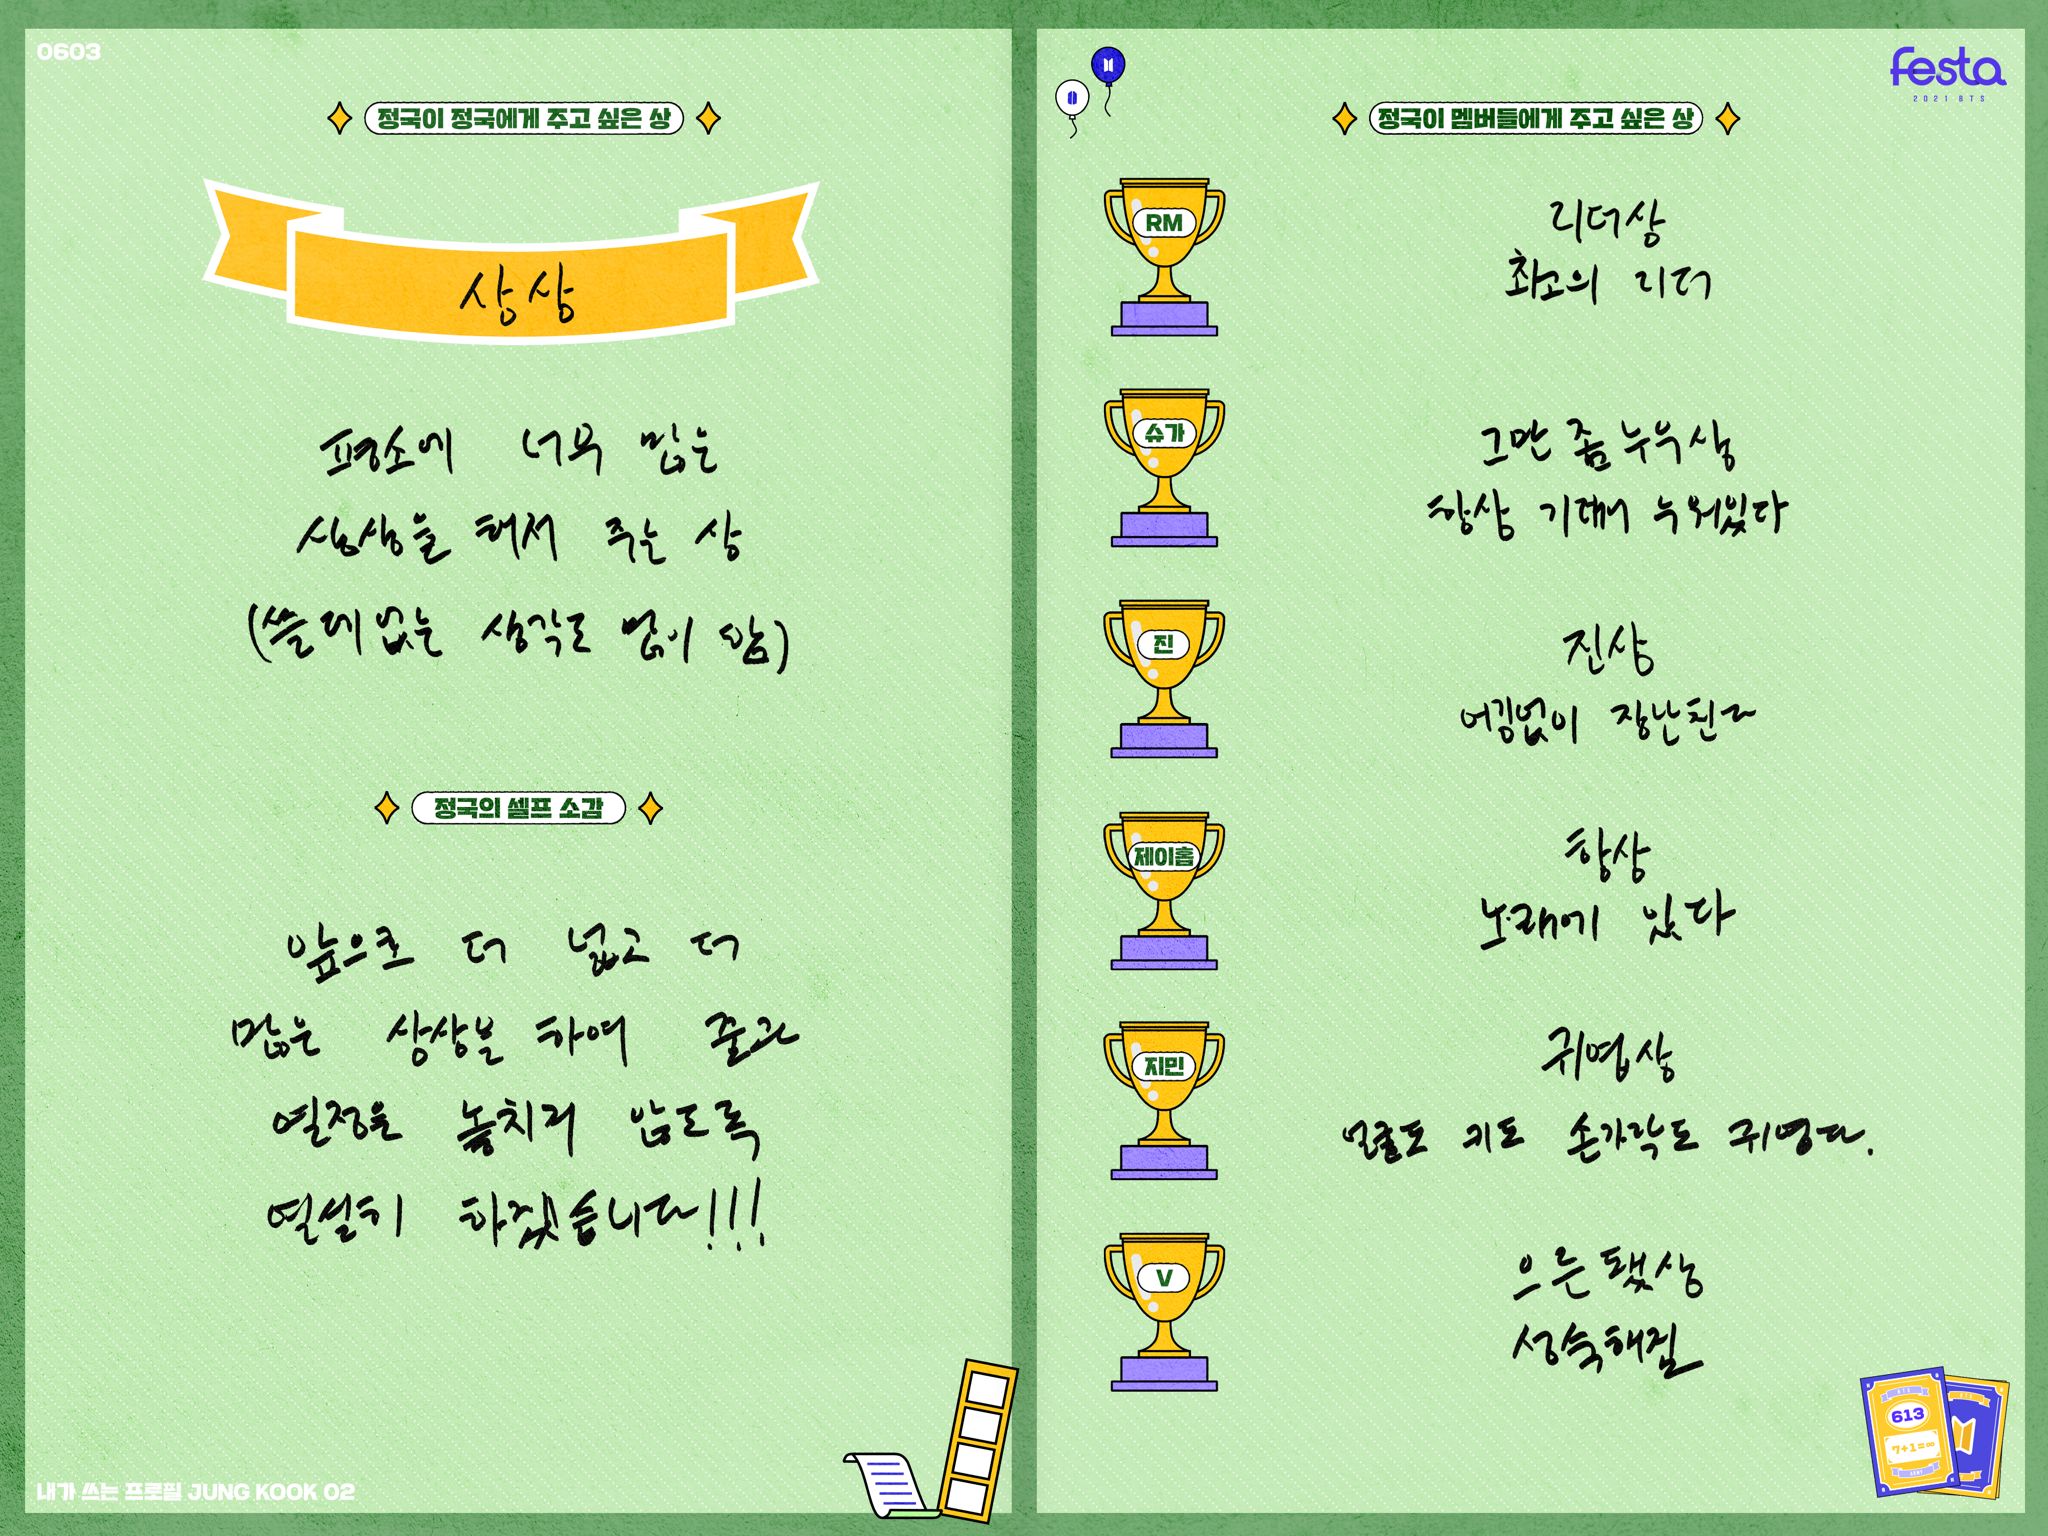 0603
정국이 정국에게 주고 싶은 상
상상
평소에 너무 많은
상상을 해서 주는 상
(쓸데없는 생각도 많이 함)
정국의 셀프 소감
앞으로 더 넓고 더
많은 상상을 하여 줄과
열정을 놓치지 않도록
열심히 하겠습니다!!!
내가 쓰는 프로필 JUNG KOOK 02
festa
2021 BTS
정국이 멤버들에게 주고 싶은 상
RM
리더상
최고의 리더
슈가
그만 좀 누우상
항상 기대어 누워있다
진
진상
어김없이 장난친다
제이홉
항상
노래에 있다
지민
귀엽상
얼굴도 키도 손가락도 귀엽다.
V
으른 됐상
성숙해짐
613
7+1=∞